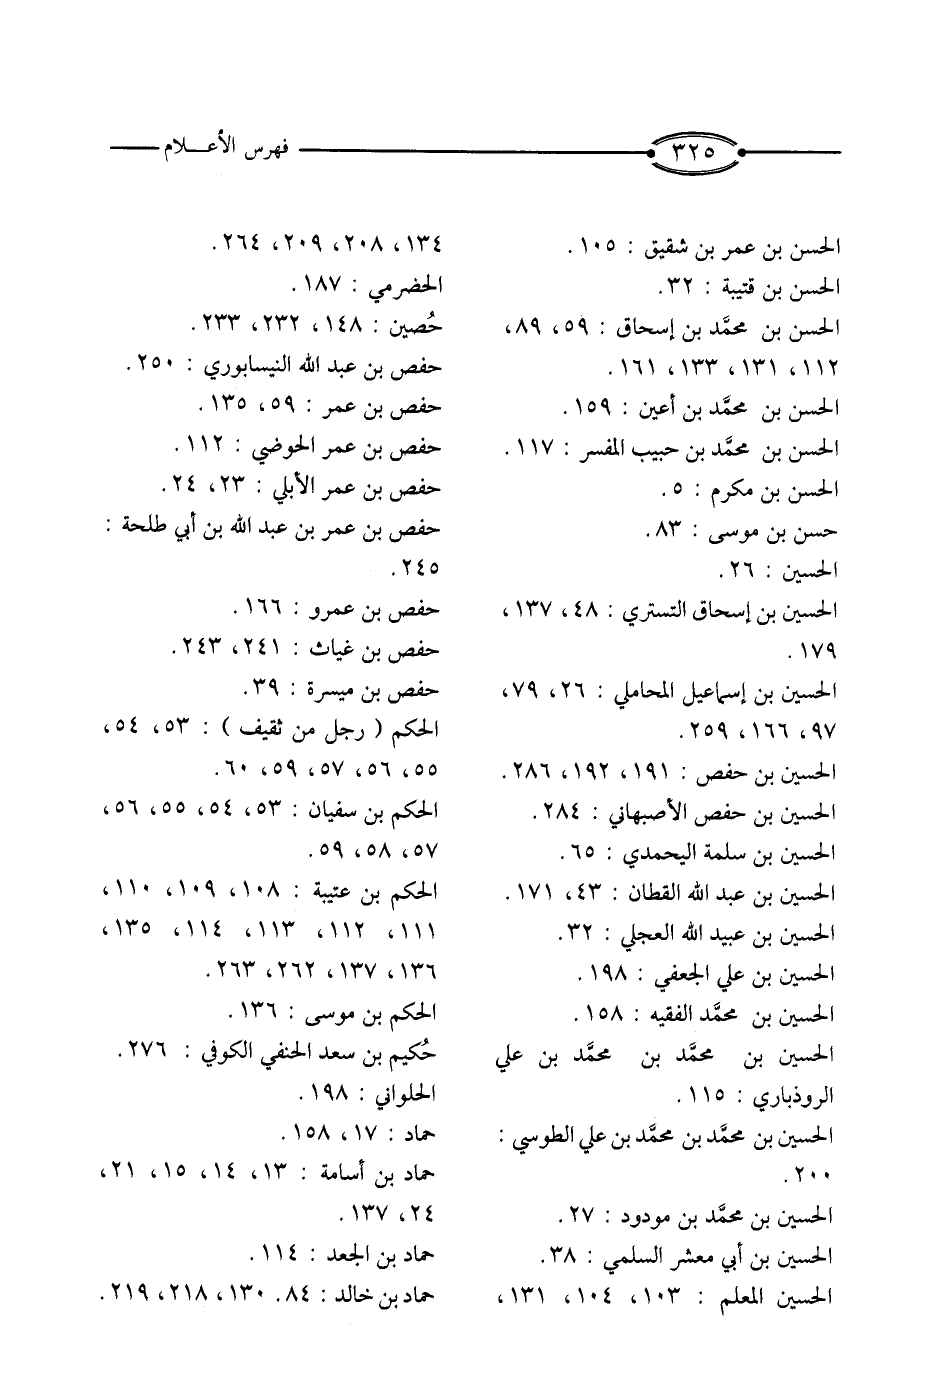 ٣٢٥
فهرس الأعـــلام
الحسن بن عمر بن شقيق : ١٠٥.
الحسن بن قتيبة : ٣٢.
الحسن بن محمَّد بن إسحاق : ٥٩، ٨٩،
١١٢، ١٣١، ١٣٣، ١٦١.
الحسن بن محمَّد بن أعين : ١٥٩.
الحسن بن محمَّد بن حبيب المفسر : ١١٧.
الحسن بن مكرم : ٥.
حسن بن موسى : ٨٣.
الحسين : ٢٦.
الحسين بن إسحاق التستري : ٤٨، ١٣٧،
١٧٩.
الحسين بن إسماعيل المحاملي : ٢٦، ٧٩،
٩٧، ١٦٦، ٢٥٩.
الحسين بن حفص : ١٩١، ١٩٢، ٢٨٦.
الحسين بن حفص الأصبهاني : ٢٨٤.
الحسين بن سلمة اليحمدي : ٦٥.
الحسين بن عبد الله القطان : ٤٣، ١٧١.
الحسين بن عبيد الله العجلي : ٣٢.
الحسين بن علي الجعفي : ١٩٨.
الحسين بن محمَّد الفقيه : ١٥٨.
الحسين بن محمَّد بن محمَّد بن علي
الروذباري : ١١٥.
الحسين بن محمَّد بن محمَّد بن علي الطوسي :
٢٠٠.
الحسين بن محمَّد بن مودود : ٢٧.
الحسين بن أبي معشر السلمي : ٣٨.
الحسين المعلم : ١٠٣، ١٠٤، ١٣١،
١٣٤، ٢٠٨، ٢٠٩، ٢٦٤.
الحضرمي : ١٨٧.
حُصين : ١٤٨، ٢٣٢، ٢٣٣.
حفص بن عبد الله النيسابوري : ٢٥٠.
حفص بن عمر : ٥٩، ١٣٥.
حفص بن عمر الحوضي : ١١٢.
حفص بن عمر الأبلي : ٢٣، ٢٤.
حفص بن عمر بن عبد الله بن أبي طلحة :
٢٤٥.
حفص بن عمرو : ١٦٦.
حفص بن غياث : ٢٤١، ٢٤٣.
حفص بن ميسرة : ٣٩.
الحكم ( رجل من ثقيف ) : ٥٣، ٥٤،
٥٥، ٥٦، ٥٧، ٥٩، ٦٠.
الحكم بن سفيان : ٥٣، ٥٤، ٥٥، ٥٦،
٥٧، ٥٨، ٥٩.
الحكم بن عتيبة : ١٠٨، ١٠٩، ١١٠،
١١١، ١١٢، ١١٣، ١١٤، ١٣٥،
١٣٦، ١٣٧، ٢٦٢، ٢٦٣.
الحكم بن موسى : ١٣٦.
حُكيم بن سعد الحنفي الكوفي : ٢٧٦.
الحلواني : ١٩٨.
حماد : ١٧، ١٥٨.
حماد بن أسامة : ١٣، ١٤، ١٥، ٢١،
٢٤، ١٣٧.
حماد بن الجعد : ١١٤.
حماد بن خالد : ٨٤. ١٣٠، ٢١٨، ٢١٩.